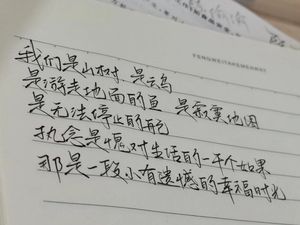 我们是山树 是云鸟
是游走地面的鱼 是寂寞地图
是无法停止的舵
执念是愧对生活的一千个如果
那是一段小有遗憾的幸福时光